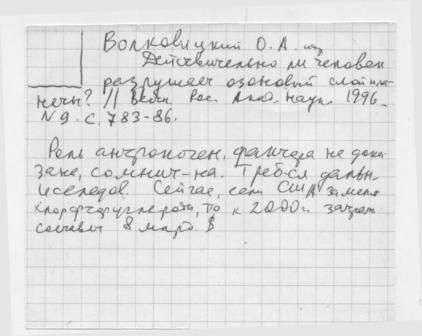 Волковицкий О. А.
Действительно ли человек
разрушает озоновый слой
// Вестн. Рос. Акад. Наук. 1996.
N 9. С. 783-86.
Роль антропоген. фактора не дока
зана, сомнит-на. Треб-ся дальн.
исследов. Сейчас, если США заменя
то к 2000 г. затраты
составят 8 млрд. $